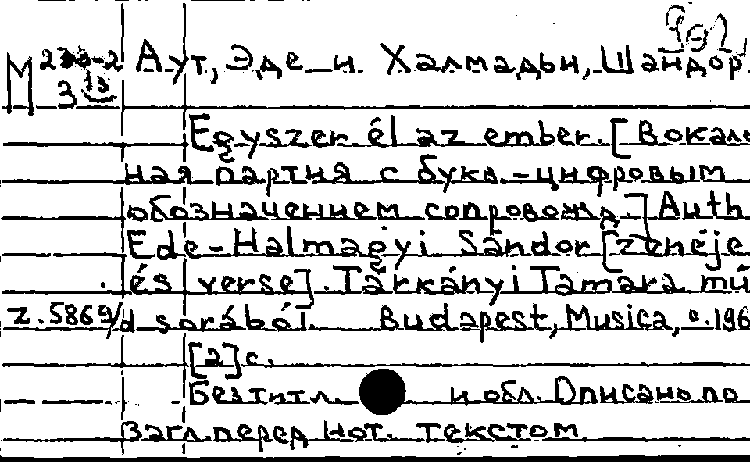 Аут, Эде и Халмадьи, Шандор.
Egyszer él az ember. [Вокаль-
ная партия с букв.-цифровым
обозначением сопровожд.] Auth
Ede-Halmágyi Sándor [zenéje
és verse]. Tárkányi Tamara mű-
z.5869/d sorából. Budapest, Musica, c.196
[2]с.
Без титл. и обл. Описано по
загл. перед нот. текстом